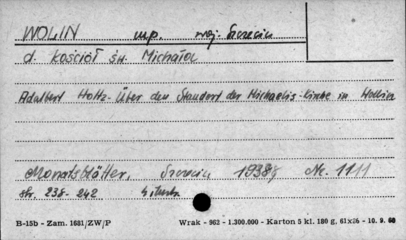 WOLIN m.p. woj. Szczecin
d. kościół św. Michała
Adalbert Holtz - Über den Standort der Michaelis-Kirche in Wollin
Monatsblätter, Szczecin 1938 Nr.
str. 238-242
B-15b - Zam. 1681/ZW/P Wrak - 962 - 1.300.000 - Karton 5 kl. 180 g, 61x86 - 10. 9.